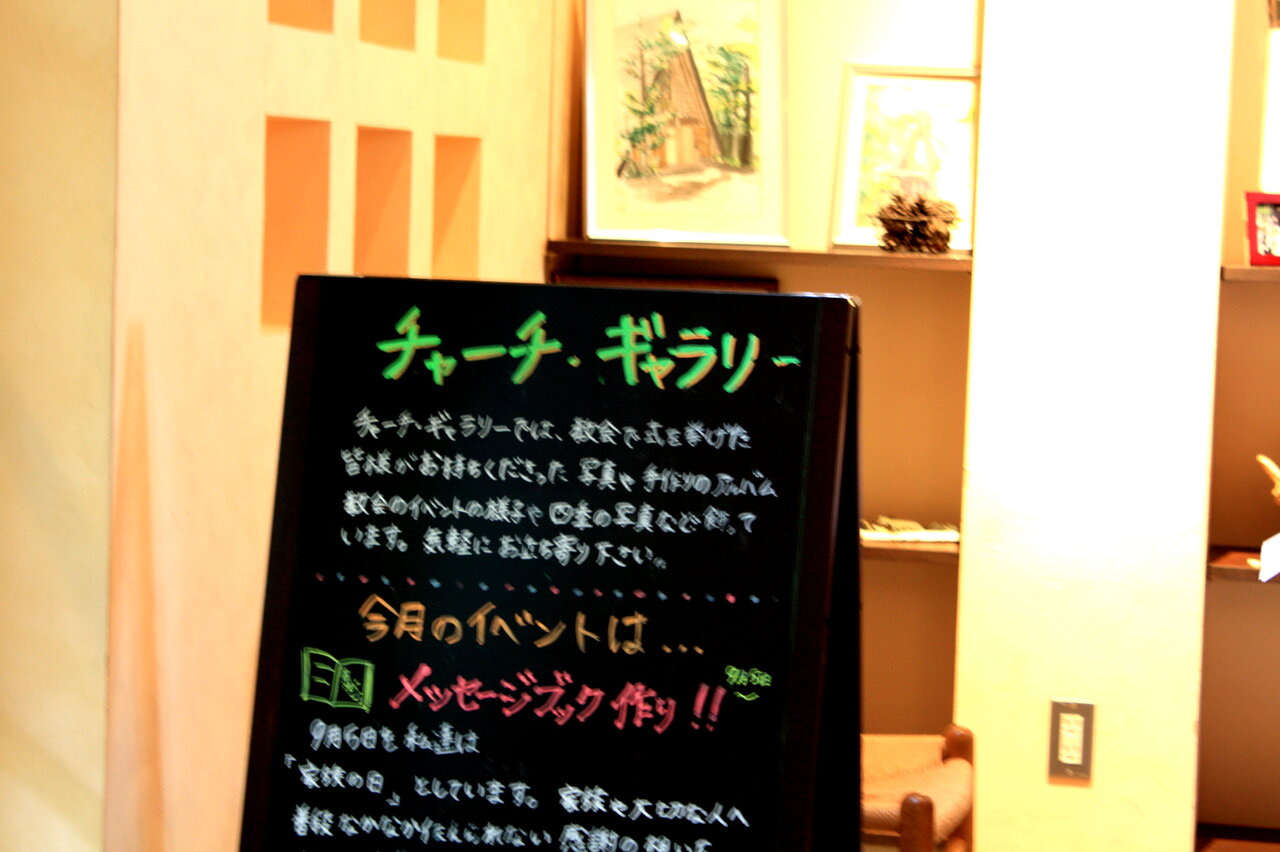 チャーチ・ギャラリー
チャーチ・ギャラリーでは、教会で式を挙げた
皆様がお持ちくださった写真や手作りのアルバム
教会のイベントの様子や四季の写真など飾って
います。気軽にお立ち寄り下さい。
今月のイベントは...
メッセージブック作り!!
9月5日〜
9月5日を私達は
「家族の日」としています。家族や大切な人へ
普段なかなか伝えられない感謝の想いを